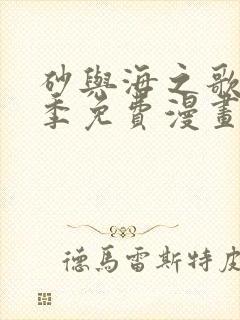 砂與海之歌
季免費漫畫
德馬雷斯特皮